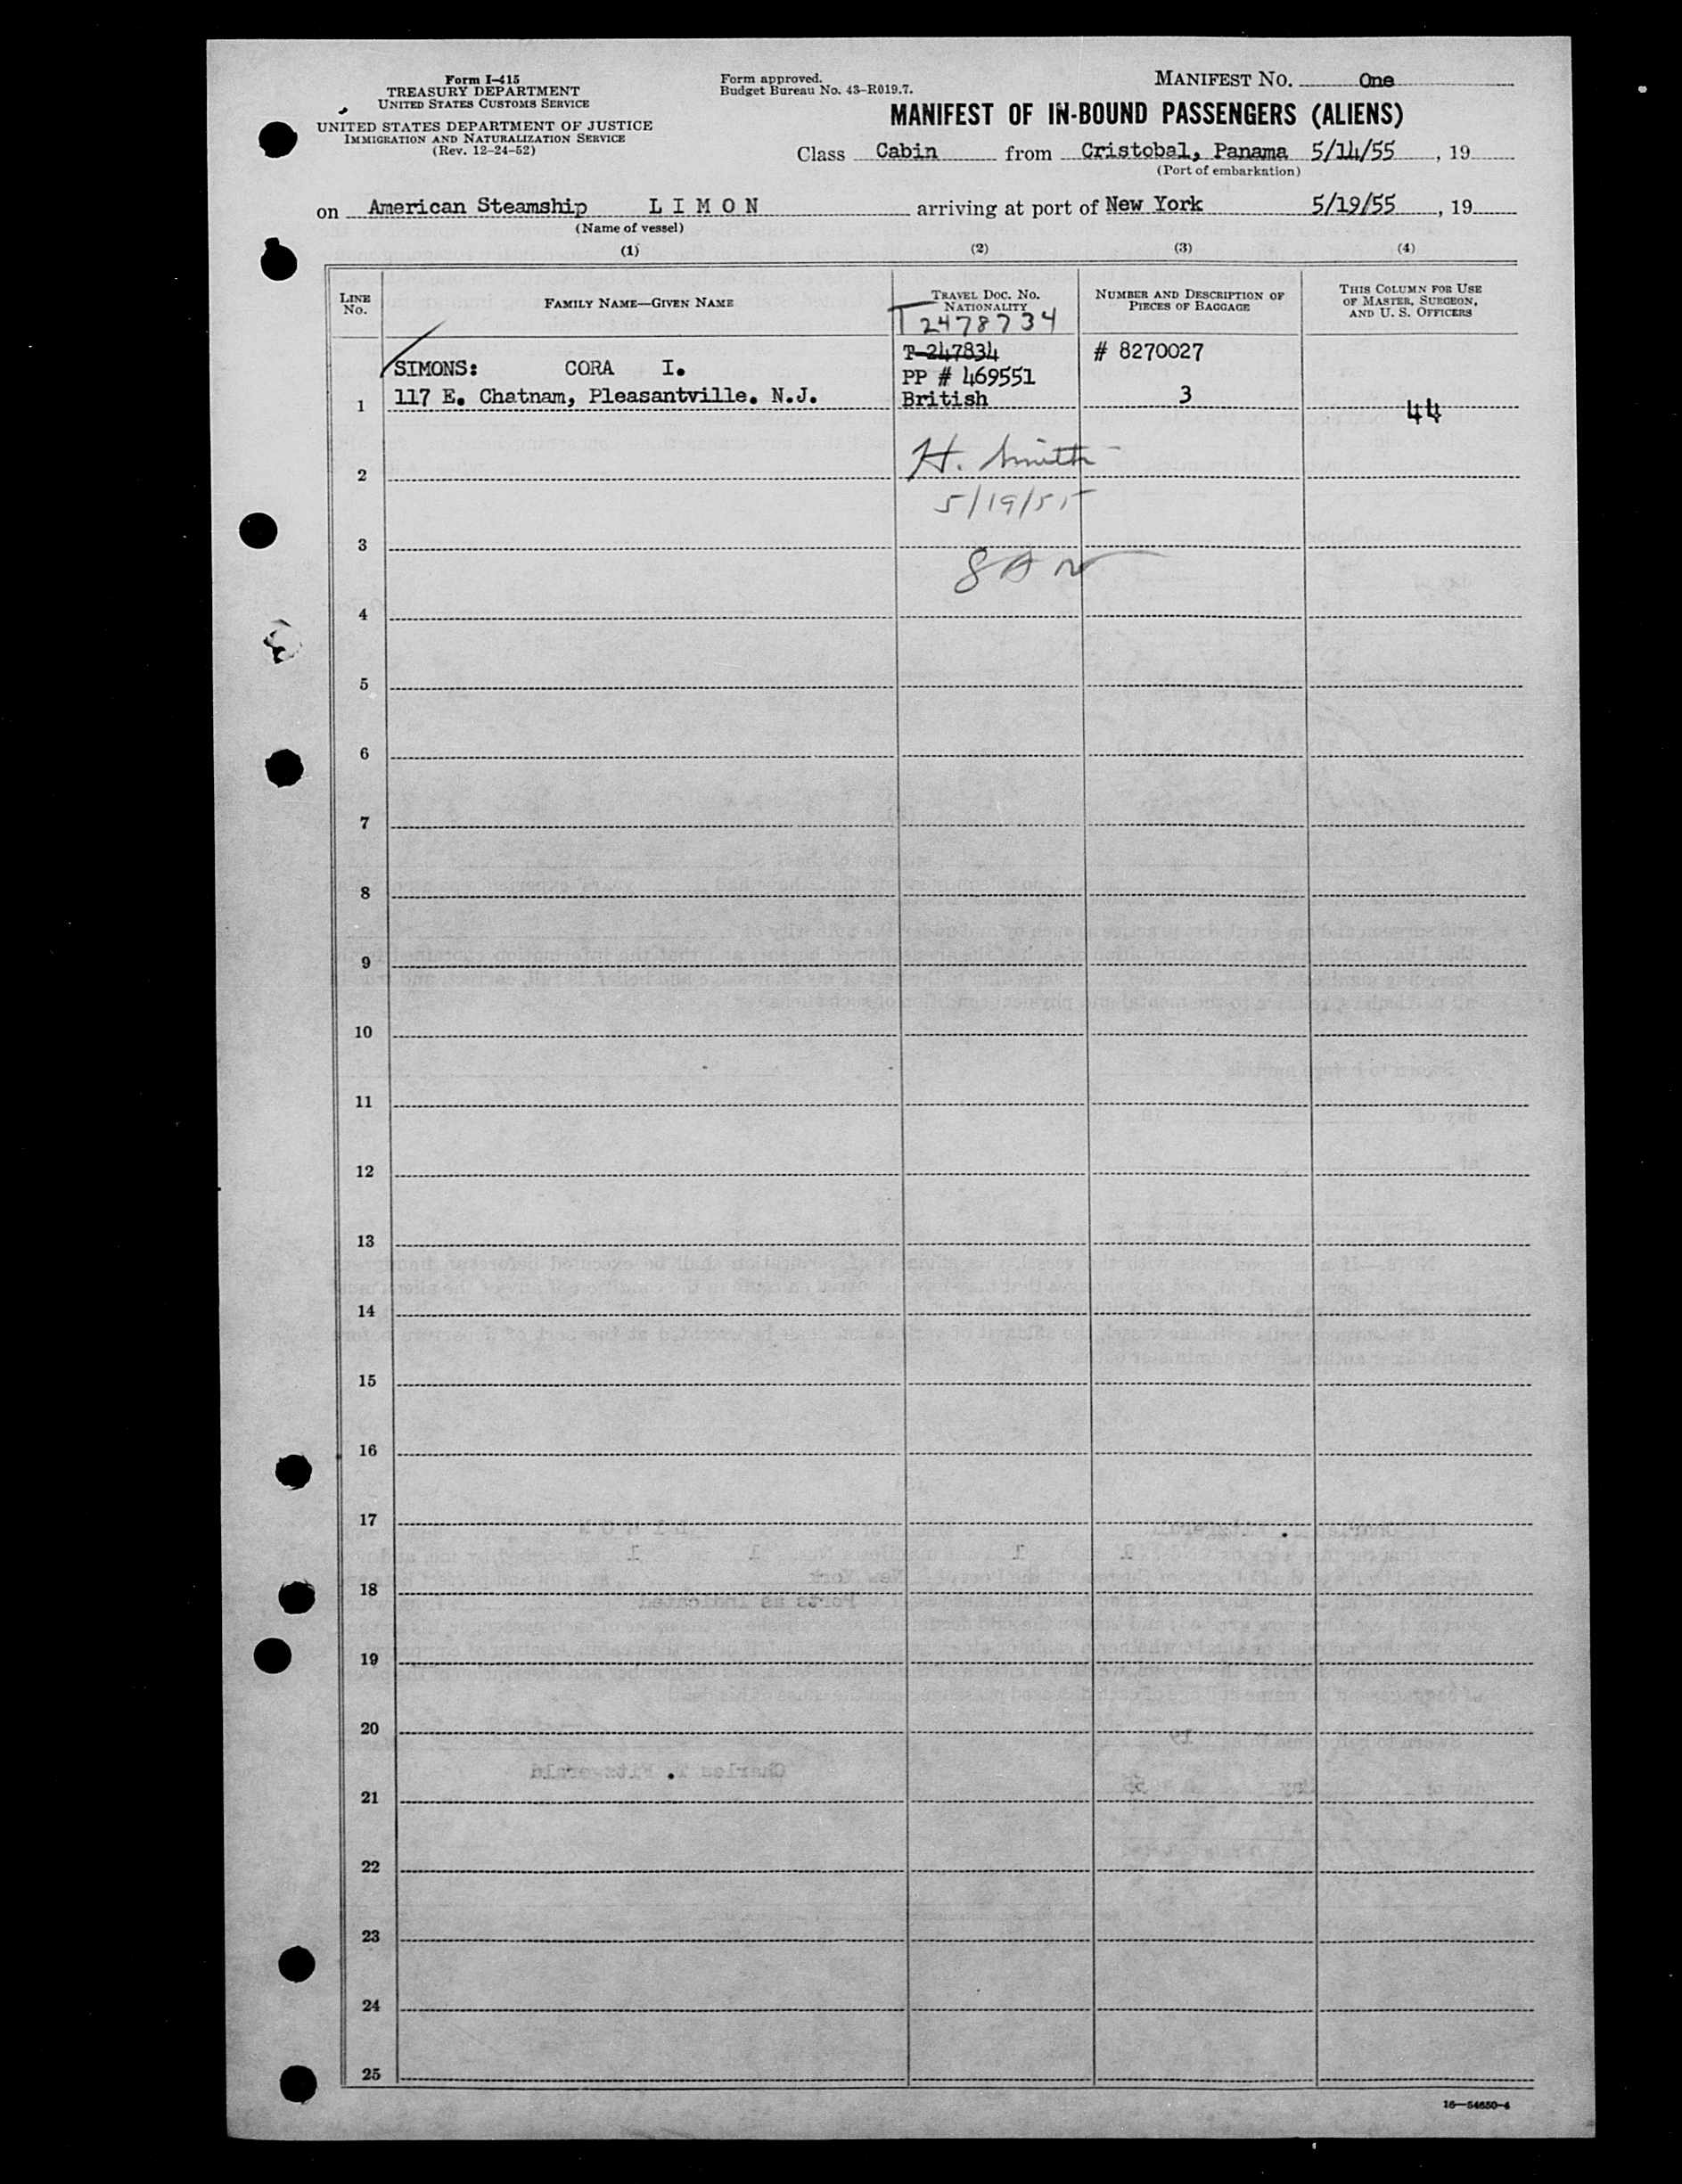 Form I-415
TREASURY DEPARTMENT
UNITED STATES CUSTOMS SERVICE
UNITED STATES DEPARTMENT OF JUSTICE
IMMIGRATION AND NATURALIZATION SERVICE
(Rev. 12-24-52)
Form approved.
Budget Bureau No. 43-R019.7.
MANIFEST NO. One
MANIFEST OF IN-BOUND PASSENGERS (ALIENS)
Class Cabin from Cristobal, Panama 5/14/55, 19
(Port of embarkation)
on American Steamship L I M O N arriving at port of New York 5/19/55, 19
(Name of vessel)
(1) (2) (3) (4)
LINE No. FAMILY NAME—GIVEN NAME TRAVEL DOC. NO. NATIONALITY NUMBER AND DESCRIPTION OF PIECES OF BAGGAGE THIS COLUMN FOR USE OF MASTER, SURGEON, AND U. S. OFFICERS
T 2478734
T-247834 # 8270027
SIMONS: CORA I. PP # 469551
1 117 E. Chatnam, Pleasantville. N.J. British 3 44
H. Smith
2
5/19/55
3
4
5
6
7
8
9
10
11
12
13
14
15
16
17
18
19
20
21
22
23
24
25
16—54650-4